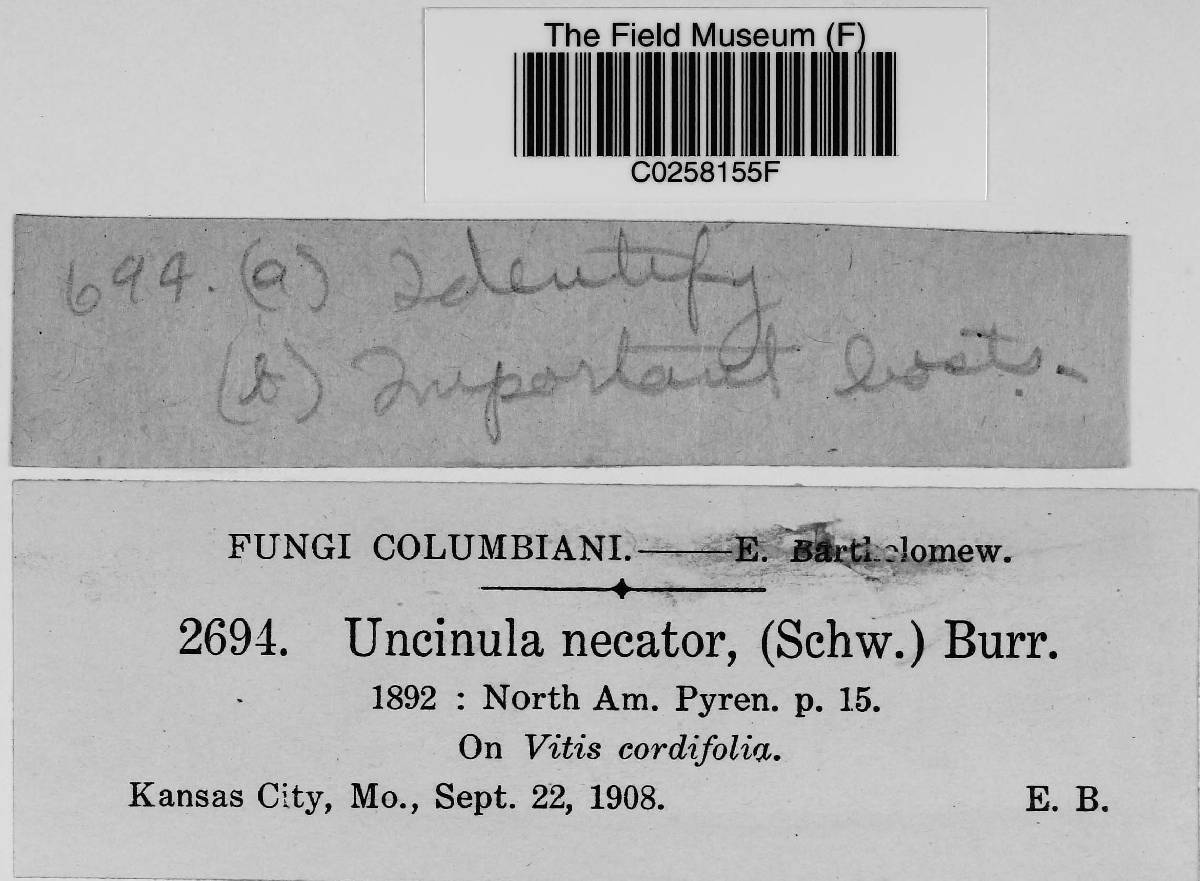 The Field Museum (F)
C0258155F
694. (a) Identify
(b) Important hosts.
FUNGI COLUMBIANI.——E. Bartholomew.
2694. Uncinula necator, (Schw.) Burr.
1892 : North Am. Pyren. p. 15.
On Vitis cordifolia.
Kansas City, Mo., Sept. 22, 1908. E. B.